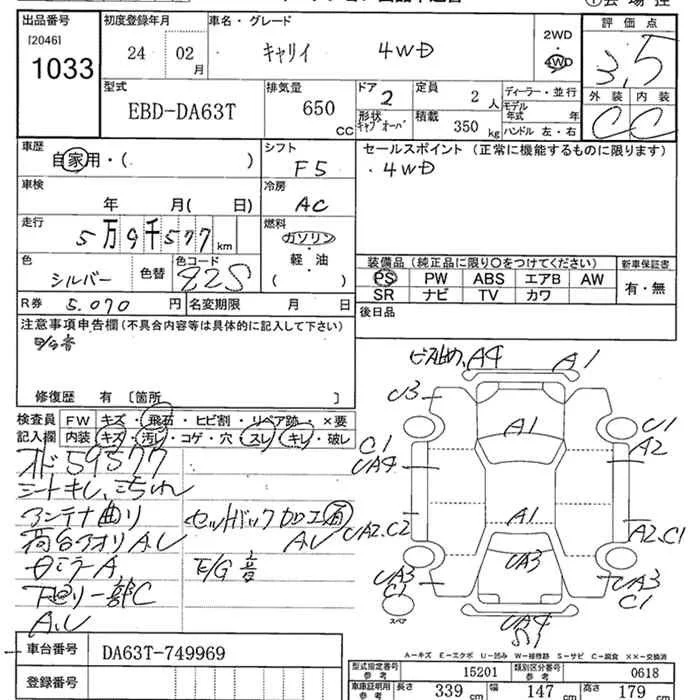 出品番号 初度登録年月 車名・グレード 評価点
[2046] 1033 24 02月 キャリイ 4WD 2WD 4WD 3.5
型式 排気量 ドア 定員 ディーラー・並行 外装 内装
EBD-DA63T 650cc 2 2人 モデル年式 年 C C
形状 積載 350kg ハンドル 左・右
車歴 シフト セールスポイント (正常に機能するものに限ります)
自家用・( ) F5 ・4WD
車検 冷房
年 月( 日) AC
走行 燃料
5万9千577km ガソリン
色 色替 色コード 軽・油 装備品(純正品に限り○をつけてください) 新車保証書
シルバー 22S ( ) PS PW ABS エアB AW 有・無
R券 5.070円 名変期限 月 日 SR ナビ TV カワ
注意事項申告欄(不具合内容等は具体的に記入して下さい) 後日品
修復歴 有 [箇所 ]
検査員 FW キズ・飛石・ヒビ割・リペア跡・×要
記入欄 内装 キズ・汚レ・コゲ・穴・スレ・キレ・破レ
オド59577
シートキレ、こもれ
アンテナ曲り セットバック加工有
荷台アオリA、U A、U
ミラーA E/G音
下廻り一部C
A、U
ビス止め、A4 A1
U3 A1 U1
C1 A2
UA4
UA2、C2 A1 A2、C1
UA3 UA3 UA3
C1 C1
スペア UA4
S1
A-キズ E-エクボ U-凹み W-補修跡 S-サビ C-腐食 ××-交換済
車台番号 DA63T-749969
登録番号
型式指定番号 参考 15201 類別区分番号 参考 0618
車庫証明用 参考 長さ 339cm 幅 147cm 高さ 179cm